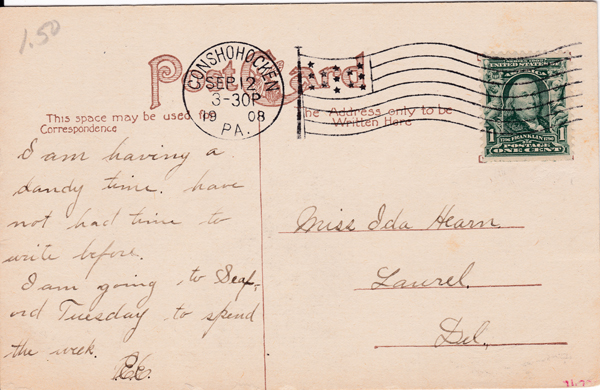 1.50
Post Card
CONSHOHOCKEN
SEP 12
3-30P
19 08
PA.
UNITED STATES OF AMERICA
1 1
POSTAGE
ONE CENT
This space may be used for
Correspondence
The Address only to be
Written Here
I am having a
dandy time. have
not had time to
write before.
I am going to Seaf-
ord Tuesday to spend
the week.
Miss Ida Hearn
Laurel.
Del.